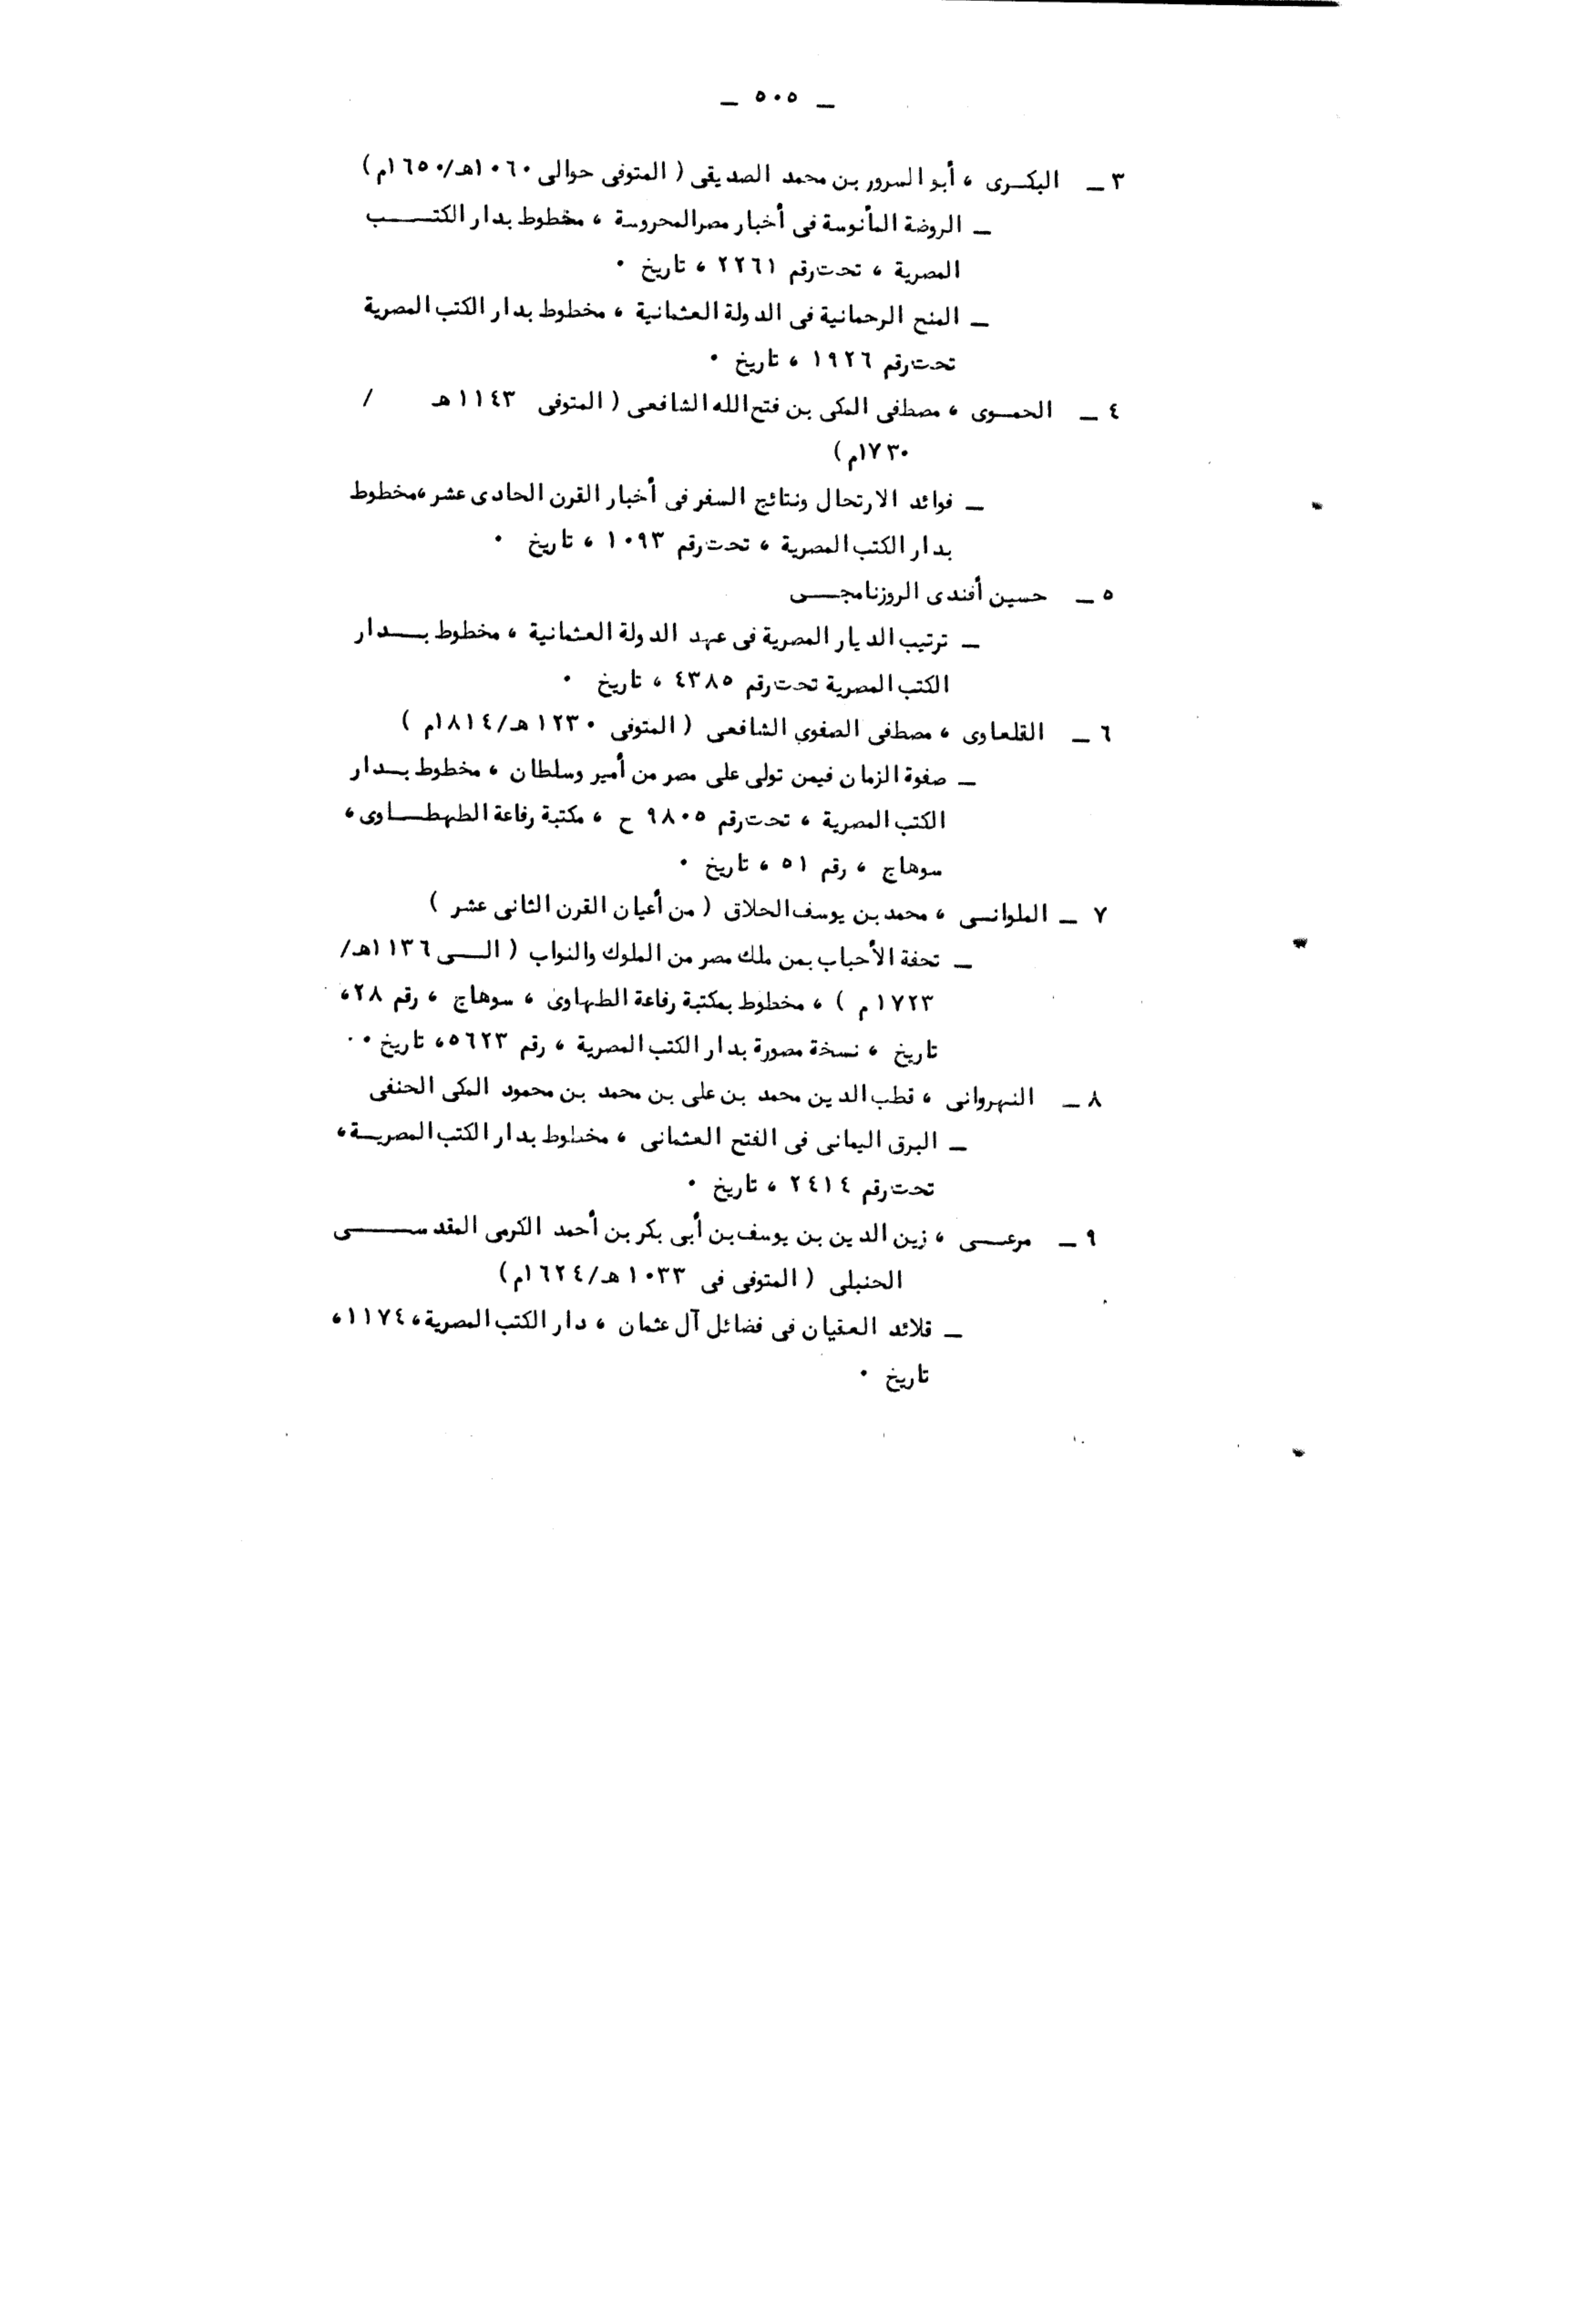 ــ ٥٠٥ ــ
٣ ــ البكرى ، أبو السرور بن محمد الصديقى ( المتوفى حوالى ١٠٦٠هـ/١٦٥٠م )
ــ الروضة المأنوسة فى أخبار مصر المحروسة ، مخطوط بدار الكتب
المصرية ، تحت رقم ٢٢٦١ ، تاريخ ٠
ــ المنح الرحمانية فى الدولة العثمانية ، مخطوط بدار الكتب المصرية
تحت رقم ١٩٢٦ ، تاريخ ٠
٤ ــ الحموى ، مصطفى المكى بن فتح الله الشافعى ( المتوفى ١١٤٣ هـ /
١٧٣٠م )
ــ فوائد الارتحال ونتائج السفر فى أخبار القرن الحادى عشر ، مخطوط
بدار الكتب المصرية ، تحت رقم ١٠٩٣ ، تاريخ ٠
٥ ــ حسين أفندى الروزنامجى
ــ ترتيب الديار المصرية فى عهد الدولة العثمانية ، مخطوط بدار
الكتب المصرية تحت رقم ٤٣٨٥ ، تاريخ ٠
٦ ــ القلعاوى ، مصطفى الصفوي الشافعى ( المتوفى ١٢٣٠ هـ/١٨١٤م )
ــ صفوة الزمان فيمن تولى على مصر من أمير وسلطان ، مخطوط بدار
الكتب المصرية ، تحت رقم ٩٨٠٥ ح ، مكتبة رفاعة الطهطاوى ،
سوهاج ، رقم ٥١ ، تاريخ ٠
٧ ــ الملوانى ، محمد بن يوسف الحلاق ( من أعيان القرن الثانى عشر )
ــ تحفة الأحباب بمن ملك مصر من الملوك والنواب ( الى ١١٣٦هـ/
١٧٢٣ م ) ، مخطوط بمكتبة رفاعة الطهاوى ، سوهاج ، رقم ٢٨ ،
تاريخ ، نسخة مصورة بدار الكتب المصرية ، رقم ٥٦٢٣ ، تاريخ ٠
٨ ــ النهروانى ، قطب الدين محمد بن على بن محمد بن محمود المكى الحنفى
ــ البرق اليمانى فى الفتح العثمانى ، مخطوط بدار الكتب المصرية ،
تحت رقم ٢٤١٤ ، تاريخ ٠
٩ ــ مرعى ، زين الدين بن يوسف بن أبى بكر بن أحمد الكرمى المقدسى
الحنبلى ( المتوفى فى ١٠٣٣ هـ/١٦٢٤م )
ــ قلائد العقيان فى فضائل آل عثمان ، دار الكتب المصرية ، ١١٧٤ ،
تاريخ ٠